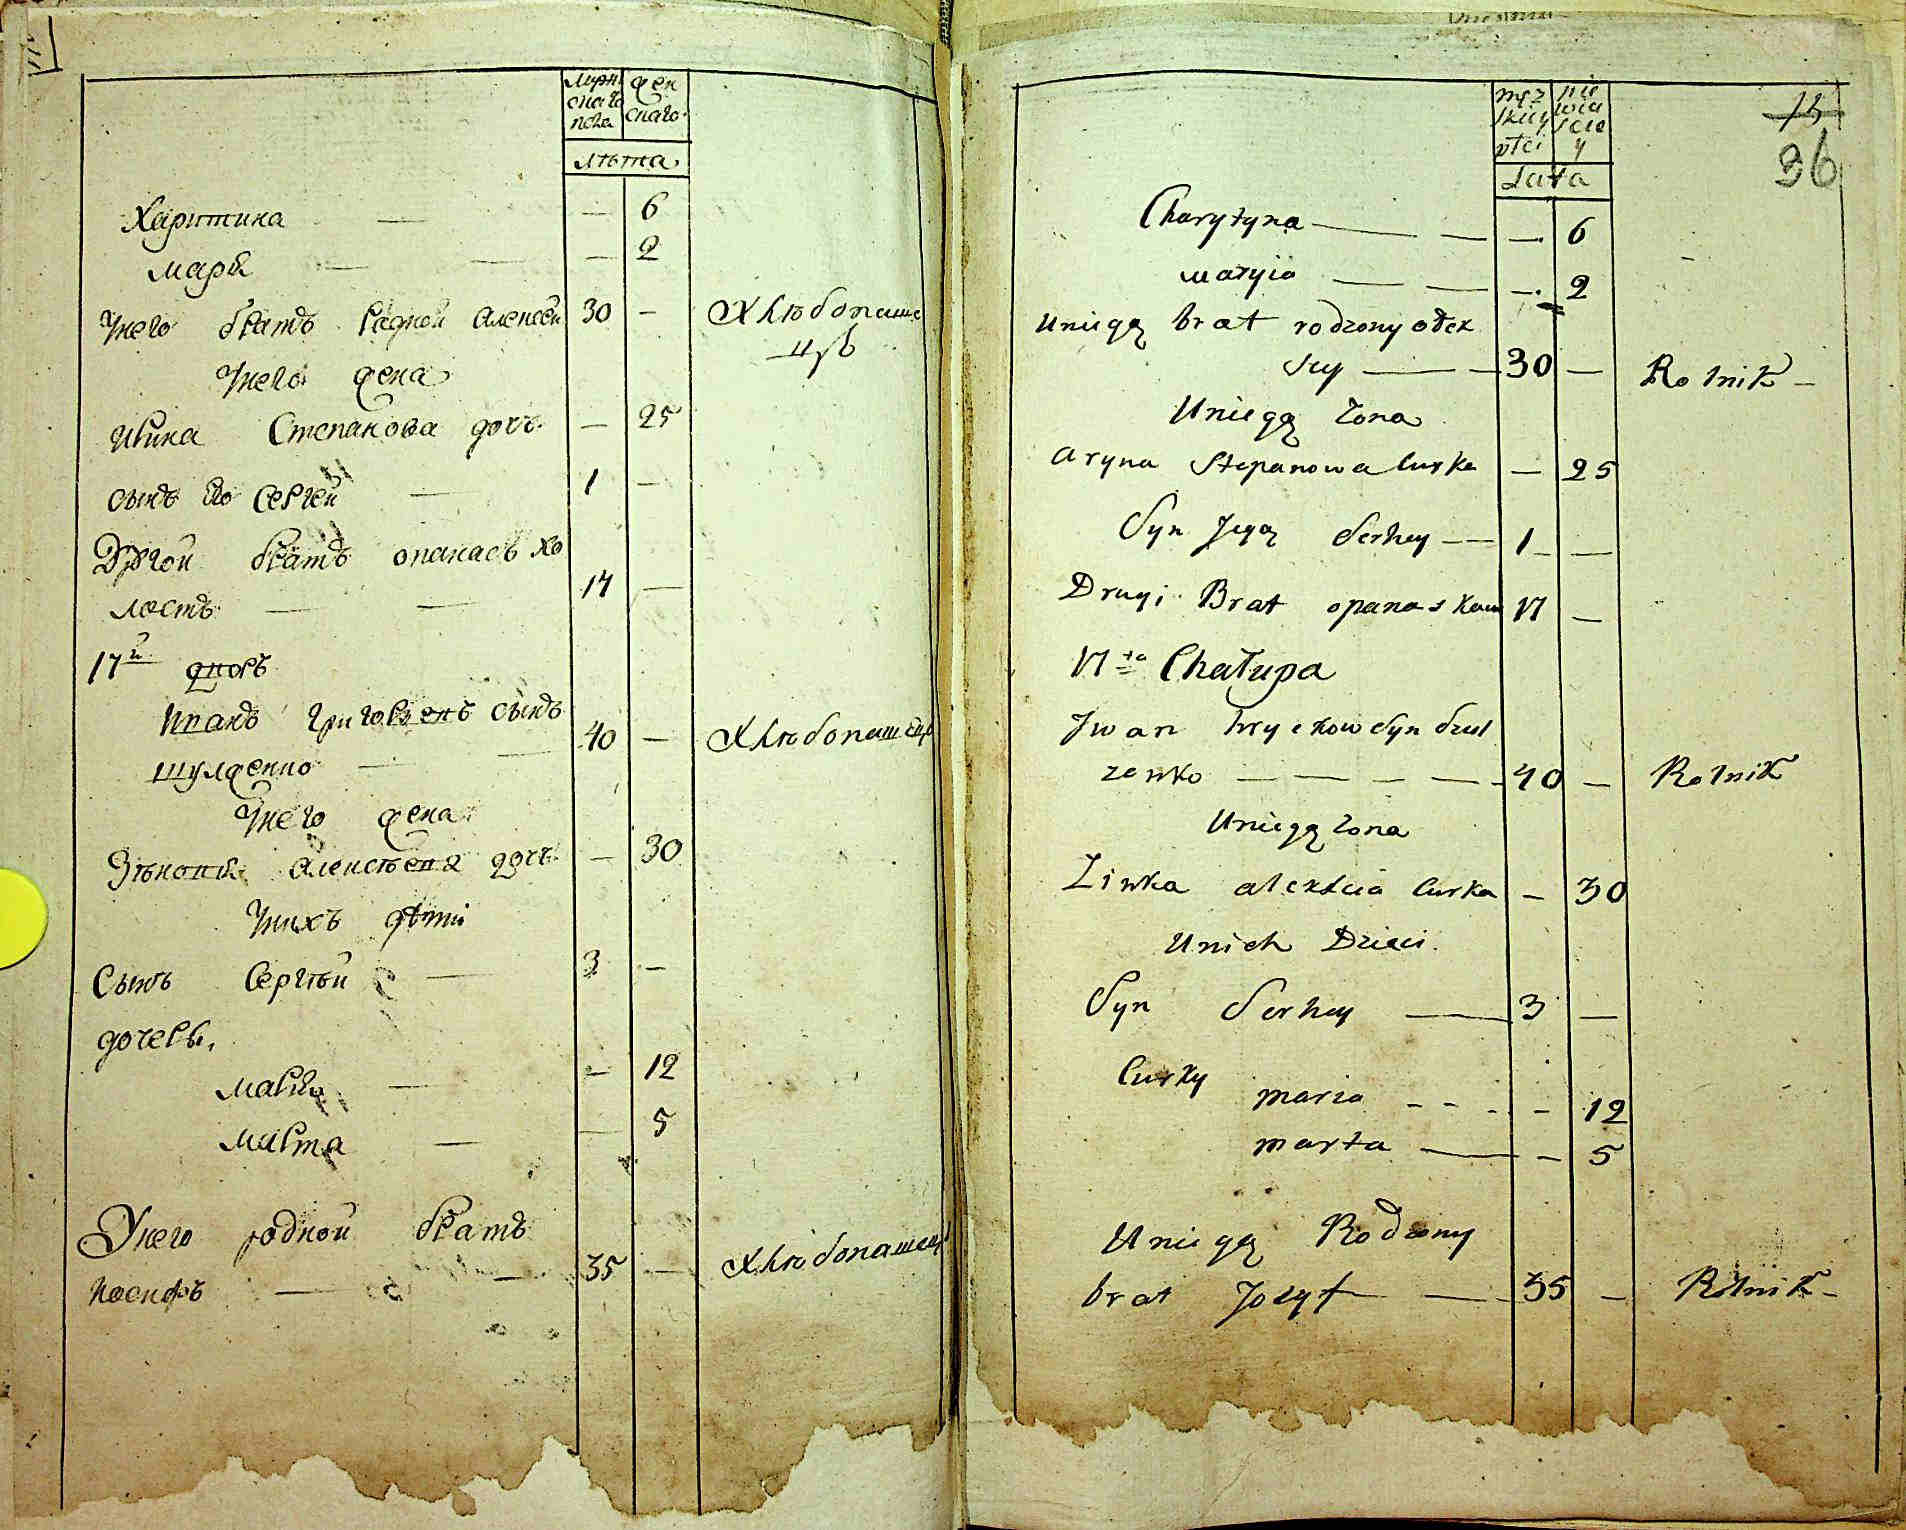 мужескаго пола
женскаго
лѣта
Харитина — — 6
Марія — — — 2
У него братъ родной Алексей 30 — Хлѣбопашецъ
У него жена
Ирина Степанова дочь — 25
сынъ его Сергей — 1 —
Другой братъ Опанасъ хо
лостъ — — 17 —
17й дворъ
Иванъ Григорьевъ сынъ
Шулженко — 40 — Хлѣбопашецъ
У него жена
Зѣновія Алексѣева дочь — 30
У нихъ дѣти
Сынъ Сергѣй — 3 —
дочеры
Марія — — 12
Марта — — 5
У него родной братъ
Иосифъ — — 35 — Хлѣбопашецъ
36
męz
skiy
płci
nie
wia
scie
y
Lata
Charytyna — — — 6
Maryia — — — 2
Uniegą brat rodzony ołex
szy — — 30 — Rolnik —
Uniegą zona
Aryna Stepanowa Curka — 25
Syn Jegą Serhey — — 1 — —
Drugi Brat opanas Kaw 17 —
17ta Chałupa
Jwan hryckow Syn Szul
zenko — — — — 40 — Rolnik
Uniegą zona
Zinka alexieia Curka — 30
Unich Dzieci
Syn Serhey — 3 —
Curky
maria - - - - 12
marta — — 5
Uniegą Rodzony
brat Jozyf — — 35 — Rolnik —